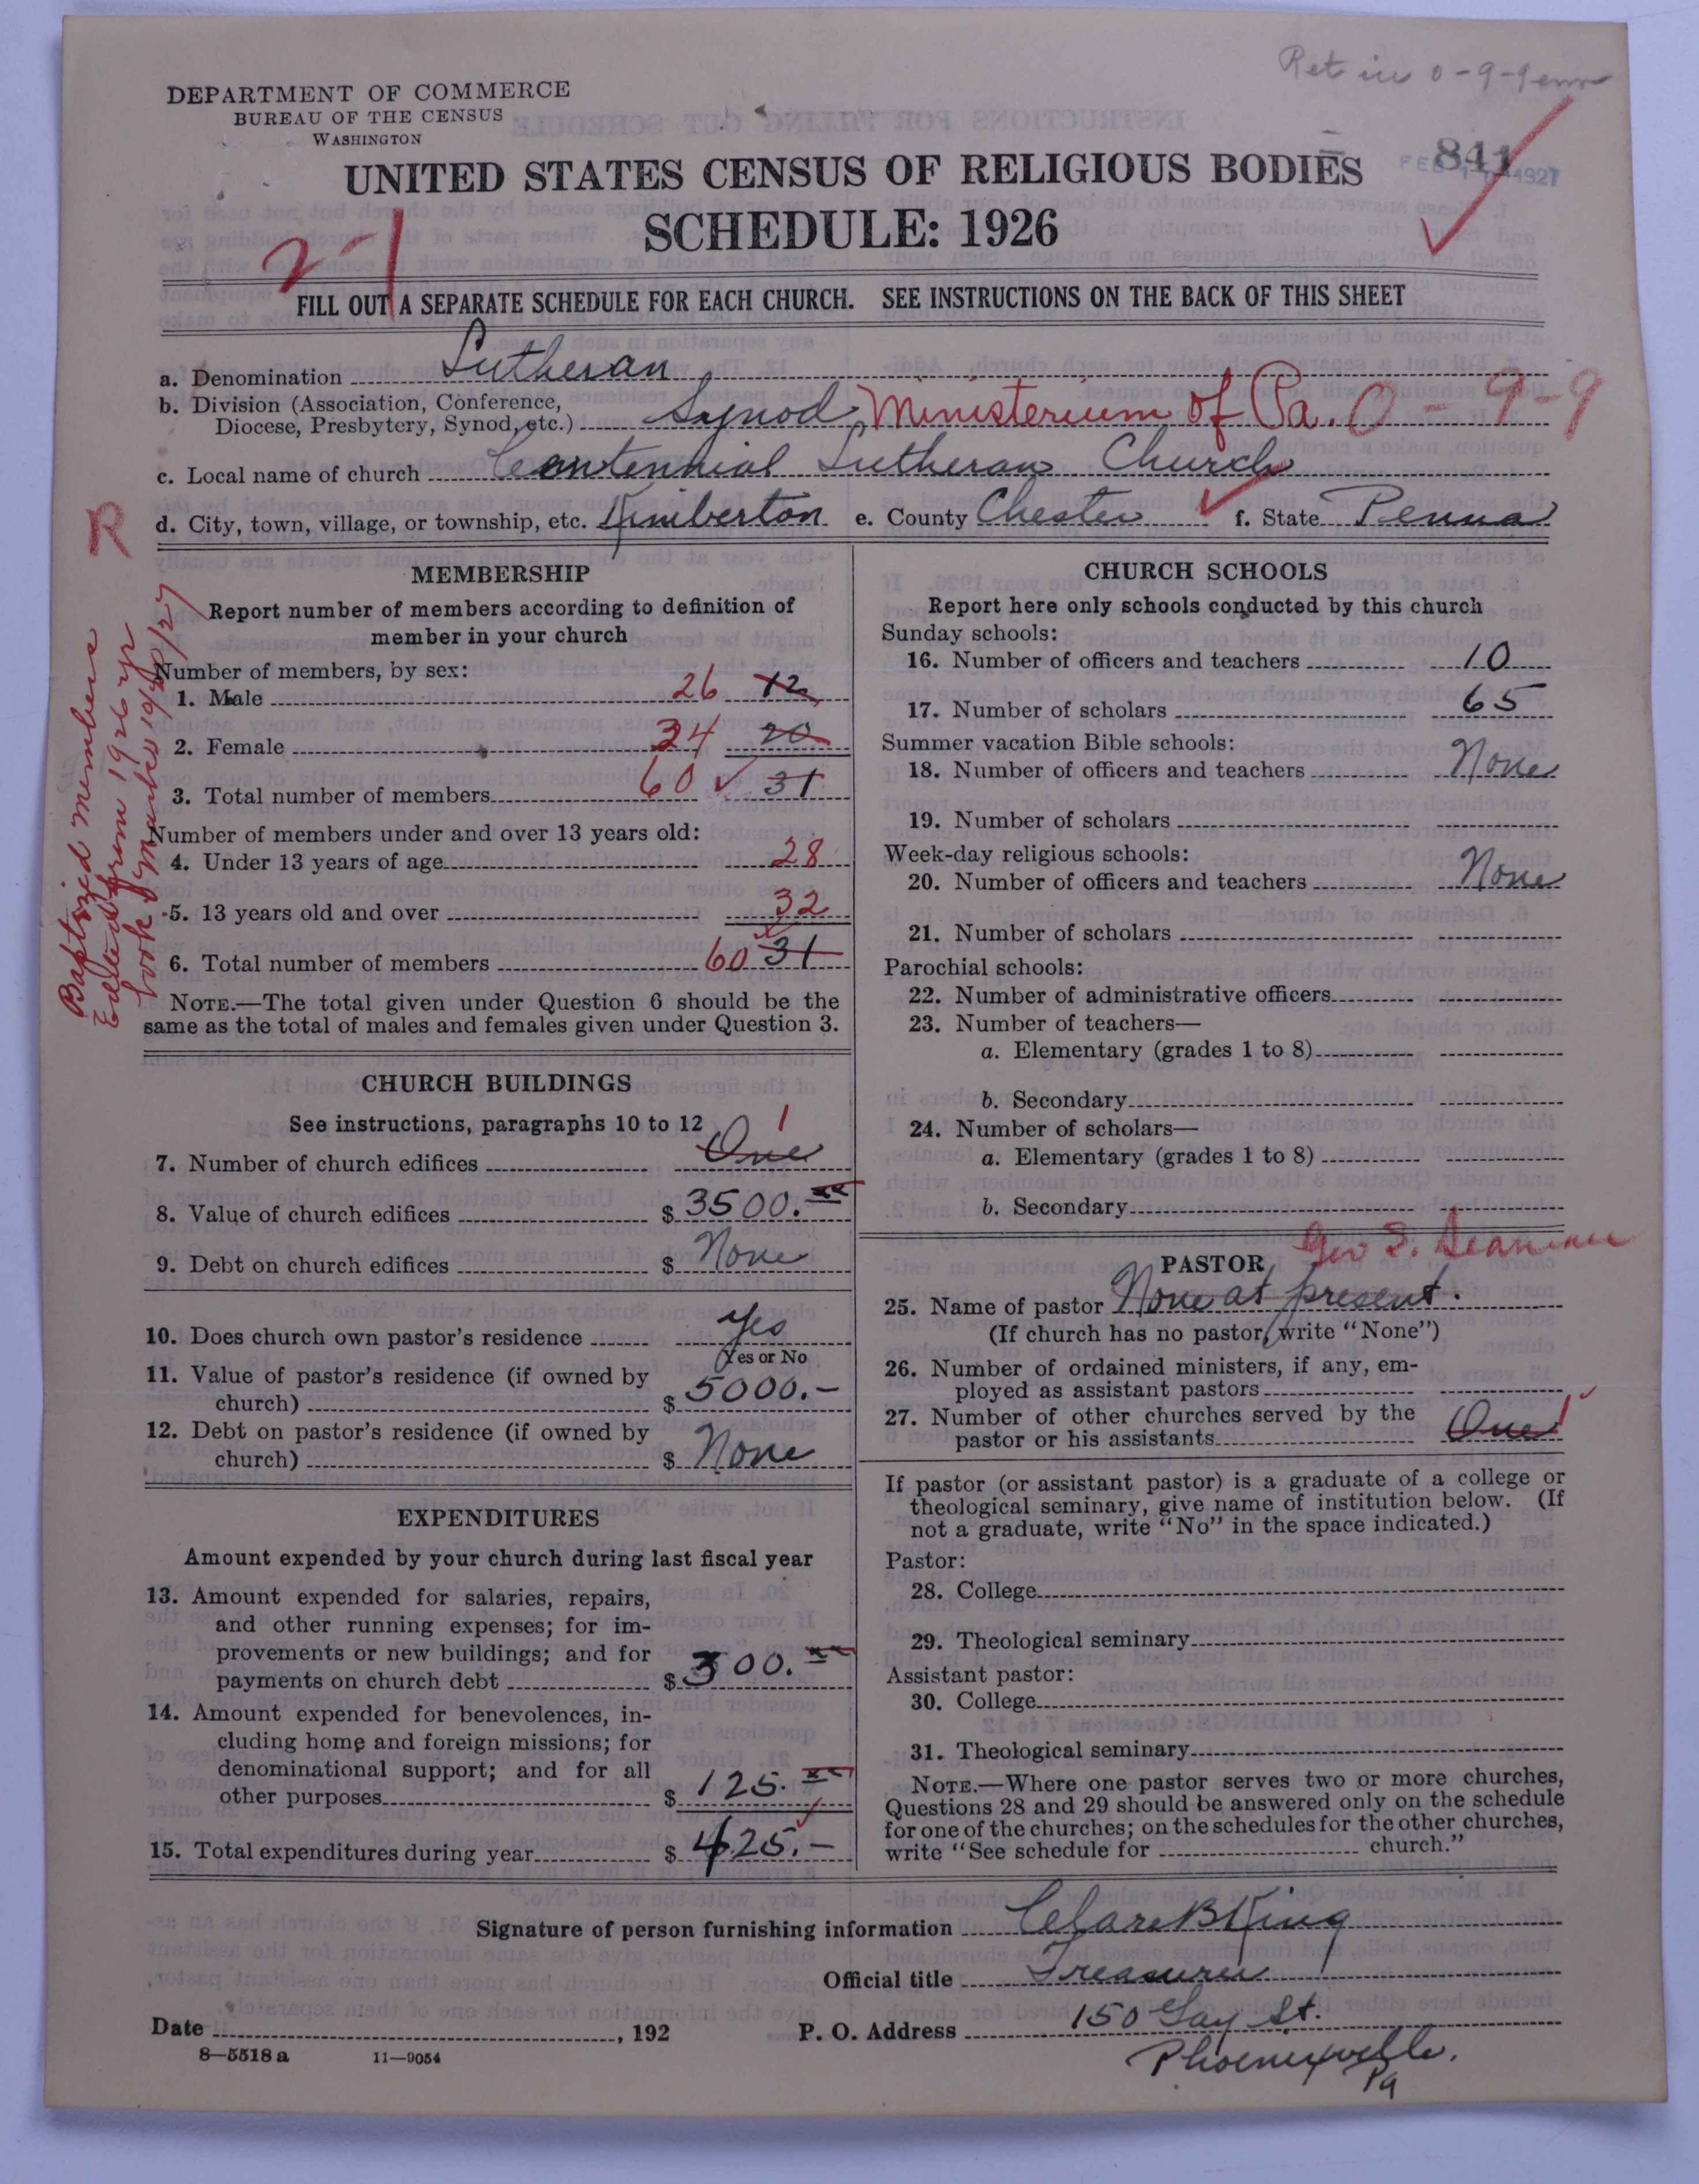 Ret in 0-9-9
DEPARTMENT OF COMMERCE
BUREAU OF THE CENSUS
WASHINGTON
841
FEB 1927
UNITED STATES CENSUS OF RELIGIOUS BODIES
SCHEDULE: 1926
2-1
FILL OUT A SEPARATE SCHEDULE FOR EACH CHURCH. SEE INSTRUCTIONS ON THE BACK OF THIS SHEET
a. Denomination Lutheran
b. Division (Association, Conference,
Diocese, Presbytery, Synod, etc.) Synod Ministerium of Pa. 0-9-9
c. Local name of church Centennial Lutheran Church
d. City, town, village, or township, etc. Kimberton e. County Chester f. State Penna
R
Baptized members
Edited from 1926 yr
book
MEMBERSHIP
Report number of members according to definition of
member in your church
Number of members, by sex:
1. Male 26 12
2. Female 34 20
3. Total number of members 60 31
Number of members under and over 13 years old:
4. Under 13 years of age 28
5. 13 years old and over 32
6. Total number of members 60 31
NOTE.—The total given under Question 6 should be the
same as the total of males and females given under Question 3.
CHURCH BUILDINGS
See instructions, paragraphs 10 to 12
7. Number of church edifices One 1
8. Value of church edifices $ 3500.xx
9. Debt on church edifices $ None
10. Does church own pastor's residence Yes
(Yes or No
11. Value of pastor's residence (if owned by
church) $ 5000.—
12. Debt on pastor's residence (if owned by
church) $ None
EXPENDITURES
Amount expended by your church during last fiscal year
13. Amount expended for salaries, repairs,
and other running expenses; for im-
provements or new buildings; and for
payments on church debt $ 300.xx
14. Amount expended for benevolences, in-
cluding home and foreign missions; for
denominational support; and for all
other purposes $ 125.xx
15. Total expenditures during year $ 425.—
CHURCH SCHOOLS
Report here only schools conducted by this church
Sunday schools:
16. Number of officers and teachers 10
17. Number of scholars 65
Summer vacation Bible schools:
18. Number of officers and teachers None
19. Number of scholars
Week-day religious schools:
20. Number of officers and teachers None
21. Number of scholars
Parochial schools:
22. Number of administrative officers
23. Number of teachers—
a. Elementary (grades 1 to 8)
b. Secondary
24. Number of scholars—
a. Elementary (grades 1 to 8)
b. Secondary
PASTOR Geo S.
25. Name of pastor None at present.
(If church has no pastor, write "None")
26. Number of ordained ministers, if any, em-
ployed as assistant pastors
27. Number of other churches served by the
pastor or his assistants One 1
If pastor (or assistant pastor) is a graduate of a college or
theological seminary, give name of institution below. (If
not a graduate, write "No" in the space indicated.)
Pastor:
28. College
29. Theological seminary
Assistant pastor:
30. College
31. Theological seminary
NOTE.—Where one pastor serves two or more churches,
Questions 28 and 29 should be answered only on the schedule
for one of the churches; on the schedules for the other churches,
write "See schedule for church."
Signature of person furnishing information B King
Official title Treasurer
Date , 192 P. O. Address 150 Gay St.
Phoenixville.
Pa
8—5518 a 11—9054